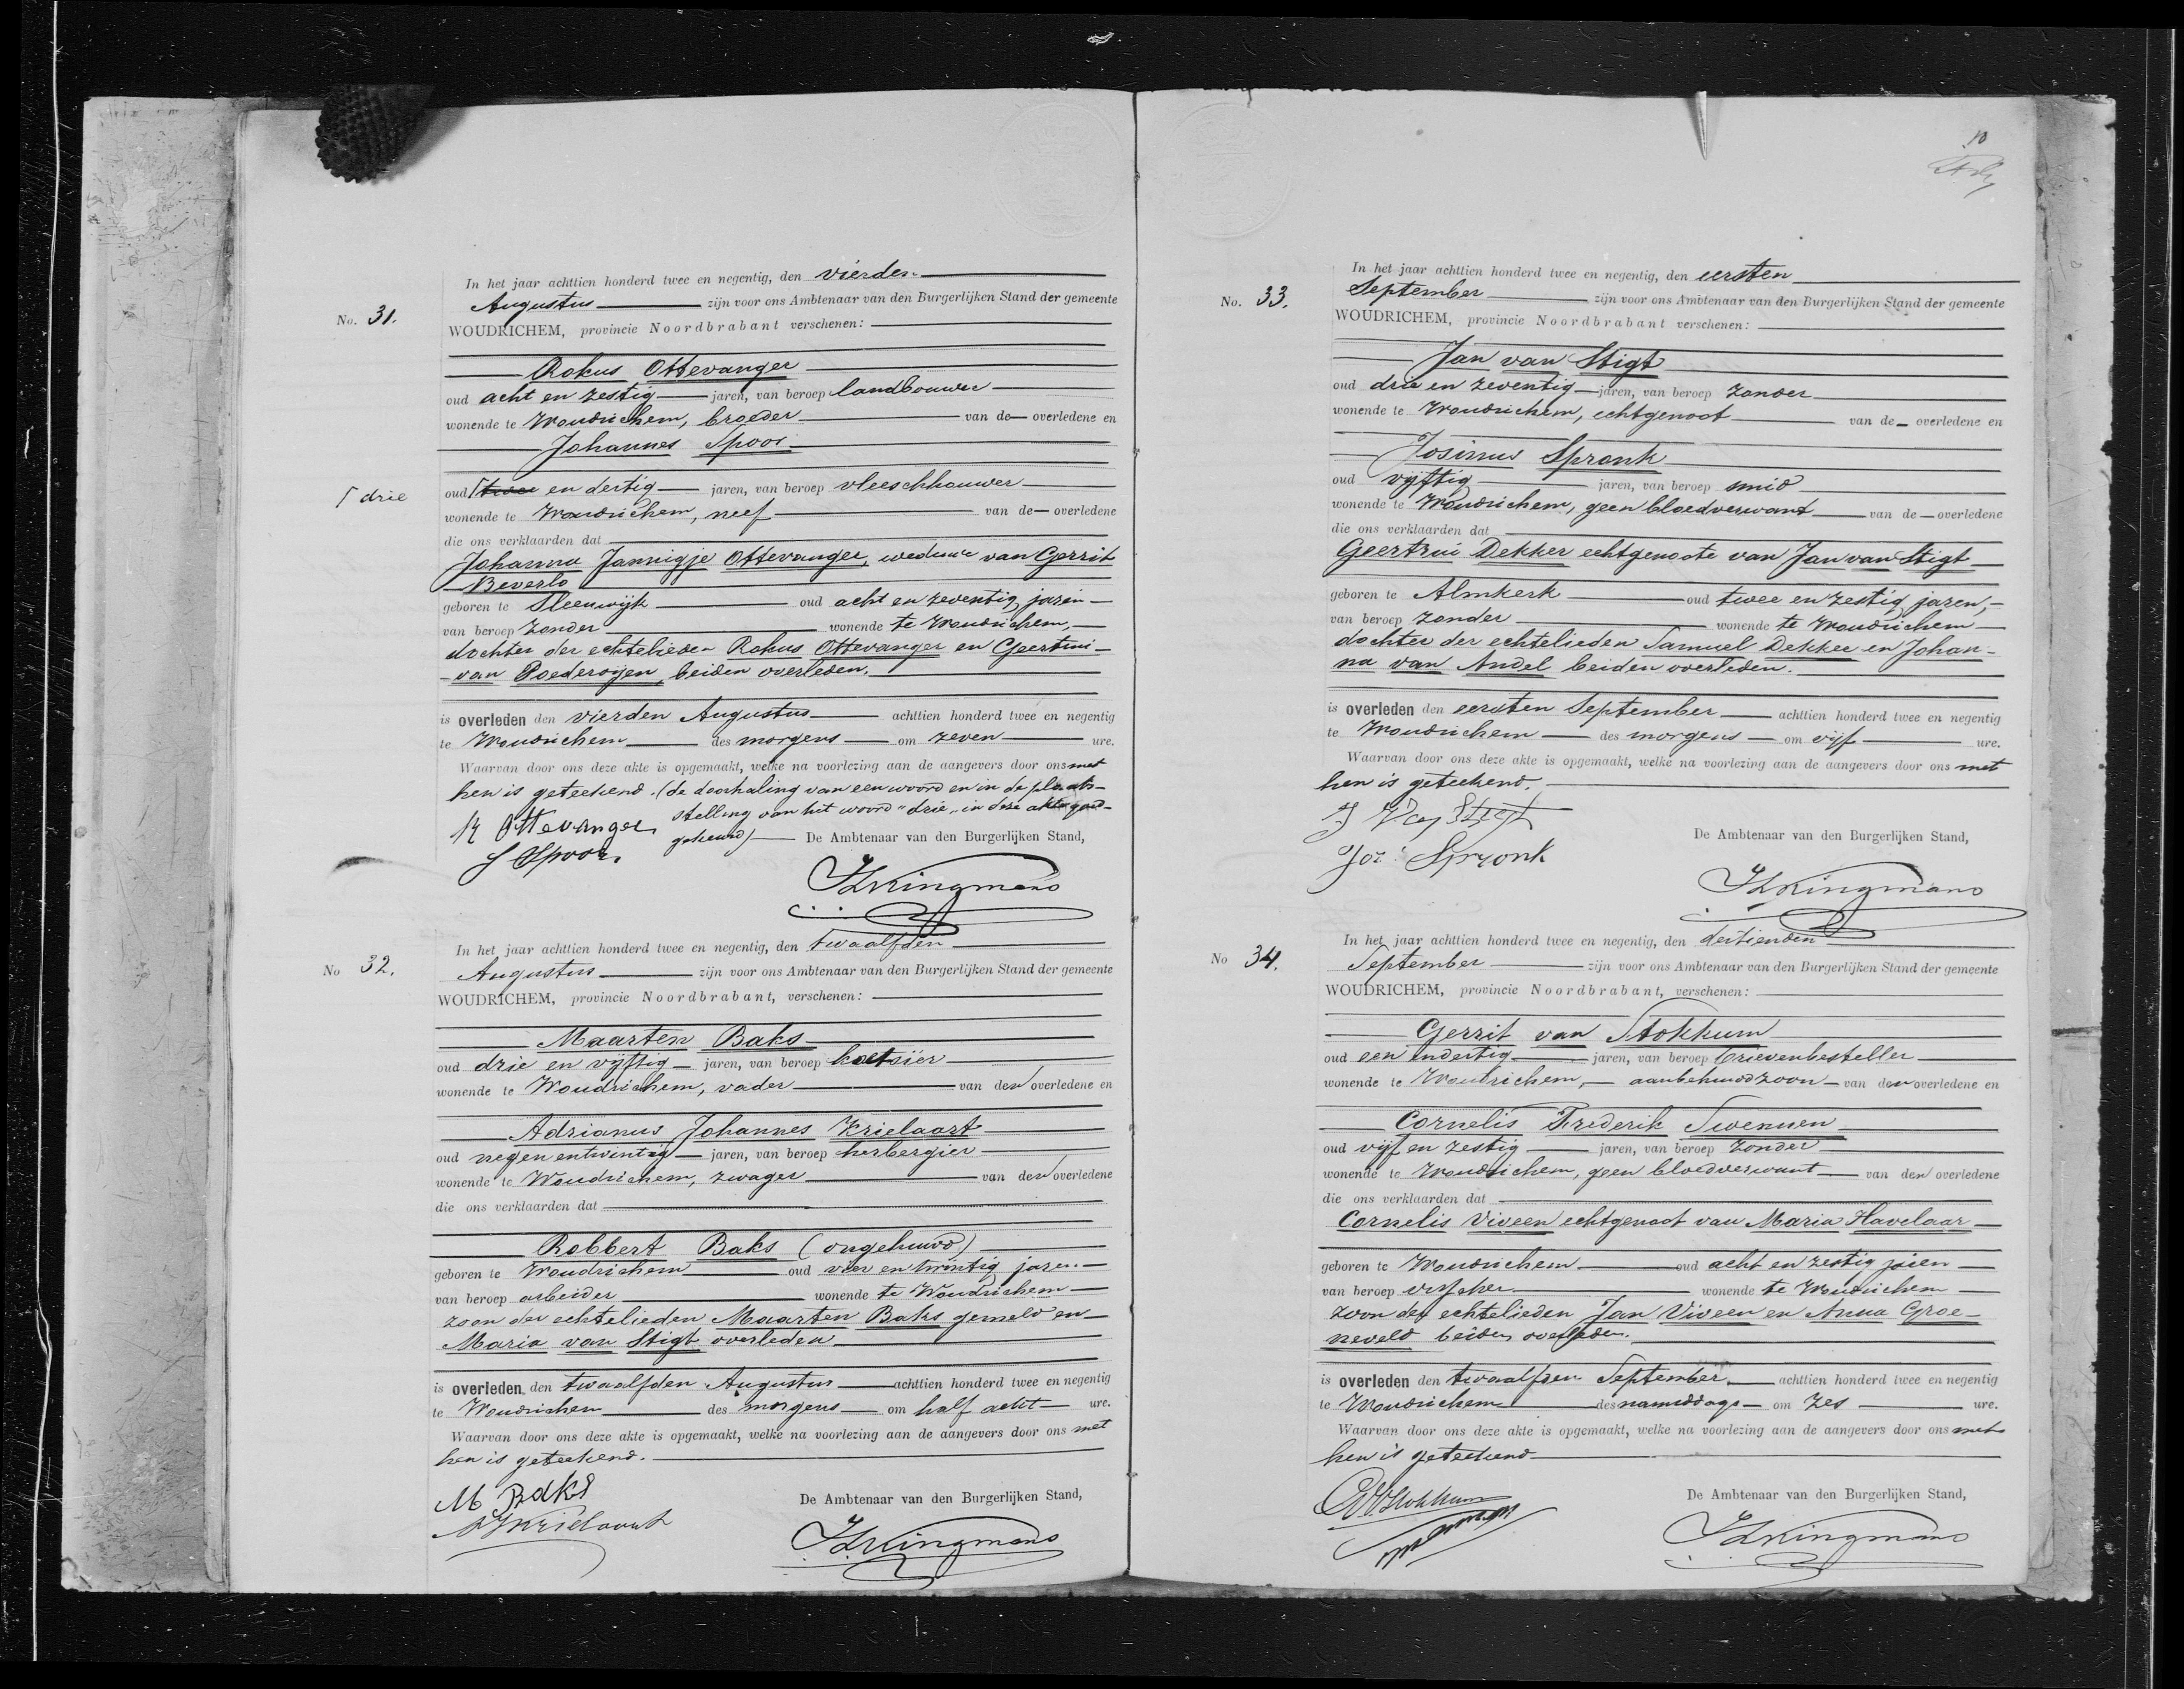 In het jaar achttien honderd twee en negentig, den vierden
No. 31. Augustus zijn voor ons Ambtenaar van den Burgerlijken Stand der gemeente
WOUDRICHEM, provincie Noordbrabant verschenen:
Rokus Ottevanger
oud acht en zestig jaren, van beroep landbouwer
wonende te Woudrichem, broeder van de overledene en
Johannes Spoor
⌈ drie oud ⌈ twee en dertig jaren, van beroep vleeschhouwer
wonende te Woudrichem, neef van de overledene
die ons verklaarden dat
Johanna Jannigje Ottevanger, weduwe van Gerrit
Beverlo
geboren te Sleeuwijk oud acht en zeventig jaren
van beroep zonder wonende te Woudrichem,
dochter der echtelieden Rokus Ottevanger en Geertrui
van Poederoyen, beiden overleden.
is overleden den vierden Augustus achttien honderd twee en negentig
te Woudrichem des morgens om zeven ure.
Waarvan door ons deze akte is opgemaakt, welke na voorlezing aan de aangevers door ons met
hen is geteekend. (de doorhaling van een woord en in de plaats-
stelling van het woord "drie" in deze akte goed-
gekeurd)
R Ottevanger
J Spoor
De Ambtenaar van den Burgerlijken Stand,
Kingmans
In het jaar achttien honderd twee en negentig, den twaalfden
No 32. Augustus zijn voor ons Ambtenaar van den Burgerlijken Stand der gemeente
WOUDRICHEM, provincie Noordbrabant, verschenen:
Maarten Baks
oud drie en vijftig jaren, van beroep koetsier
wonende te Woudrichem, vader van den overledene en
Adrianus Johannes Krielaart
oud negen en twintig jaren, van beroep herbergier
wonende te Woudrichem, zwager van den overledene
die ons verklaarden dat
Robbert Baks (ongehuwd)
geboren te Woudrichem oud vier en twintig jaren
van beroep arbeider wonende te Woudrichem
zoon der echtelieden Maarten Baks gemeld en
Maria van Stigt overleden
is overleden den twaalfden Augustus achttien honderd twee en negentig
te Woudrichem des morgens om half acht ure.
Waarvan door ons deze akte is opgemaakt, welke na voorlezing aan de aangevers door ons met
hen is geteekend.
M Baks
AJKrielaart
De Ambtenaar van den Burgerlijken Stand,
Kingmans
10
In het jaar achttien honderd twee en negentig, den eersten
No. 33. September zijn voor ons Ambtenaar van den Burgerlijken Stand der gemeente
WOUDRICHEM, provincie Noordbrabant verschenen:
Jan van Stigt
oud drie en zeventig jaren, van beroep zonder
wonende te Woudrichem, echtgenoot van de overledene en
Josinus Spronk
oud vijftig jaren, van beroep smid
wonende te Woudrichem, geen bloedverwant van de overledene
die ons verklaarden dat
Geertrui Dekker echtgenoote van Jan van Stigt
geboren te Almkerk oud twee en zestig jaren,
van beroep zonder wonende te Woudrichem
dochter der echtelieden Samuel Dekker en Johan-
na van Andel beiden overleden.
is overleden den eersten September achttien honderd twee en negentig
te Woudrichem des morgens om vijf ure.
Waarvan door ons deze akte is opgemaakt, welke na voorlezing aan de aangevers door ons met
hen is geteekend.
J Van Stigt
Jos: Spronk
De Ambtenaar van den Burgerlijken Stand,
Kingmans
In het jaar achttien honderd twee en negentig, den dertienden
No 34. September zijn voor ons Ambtenaar van den Burgerlijken Stand der gemeente
WOUDRICHEM, provincie Noordbrabant, verschenen:
Gerrit van Stokkum
oud een en dertig jaren, van beroep brievenbesteller
wonende te Woudrichem, aanbehuwdzoon van den overledene en
Cornelis Frederik Swennen
oud vijf en zestig jaren, van beroep zonder
wonende te Woudrichem, geen bloedverwant van den overledene
die ons verklaarden dat
Cornelis Viveen echtgenoot van Maria Havelaar
geboren te Woudrichem oud acht en zestig jaren
van beroep visscher wonende te Woudrichem
zoon der echtelieden Jan Viveen en Anna Groe-
neveld beiden overleden.
is overleden den twaalfden September achttien honderd twee en negentig
te Woudrichem des namiddags om zes ure.
Waarvan door ons deze akte is opgemaakt, welke na voorlezing aan de aangevers door ons met
hen is geteekend
GVStokkum
De Ambtenaar van den Burgerlijken Stand,
Kingmans